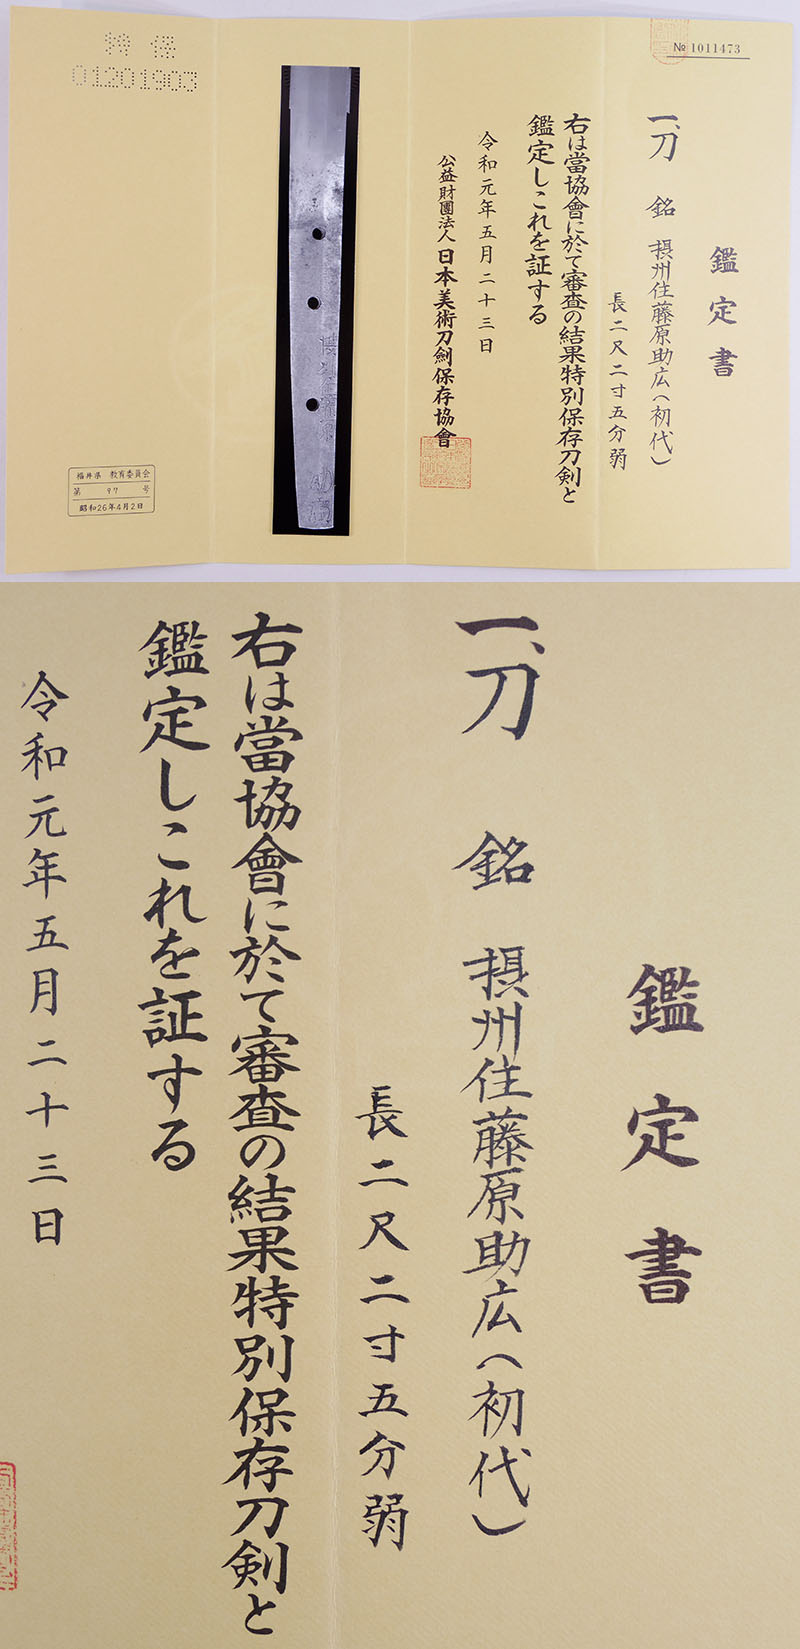 № 1011473
鑑定書
一、刀 銘 摂州住藤原助広(初代)
長二尺二寸五分弱
右は當協會に於て審査の結果特別保存刀剣と
鑑定しこれを証する
令和元年五月二十三日
公益財團法人日本美術刀劍保存協會
特保
01201903
福井県 教育委員会
第 97 号
昭和26年4月2日
鑑定書
一、刀 銘 摂州住藤原助広(初代)
長二尺二寸五分弱
右は當協會に於て審査の結果特別保存刀剣と
鑑定しこれを証する
令和元年五月二十三日